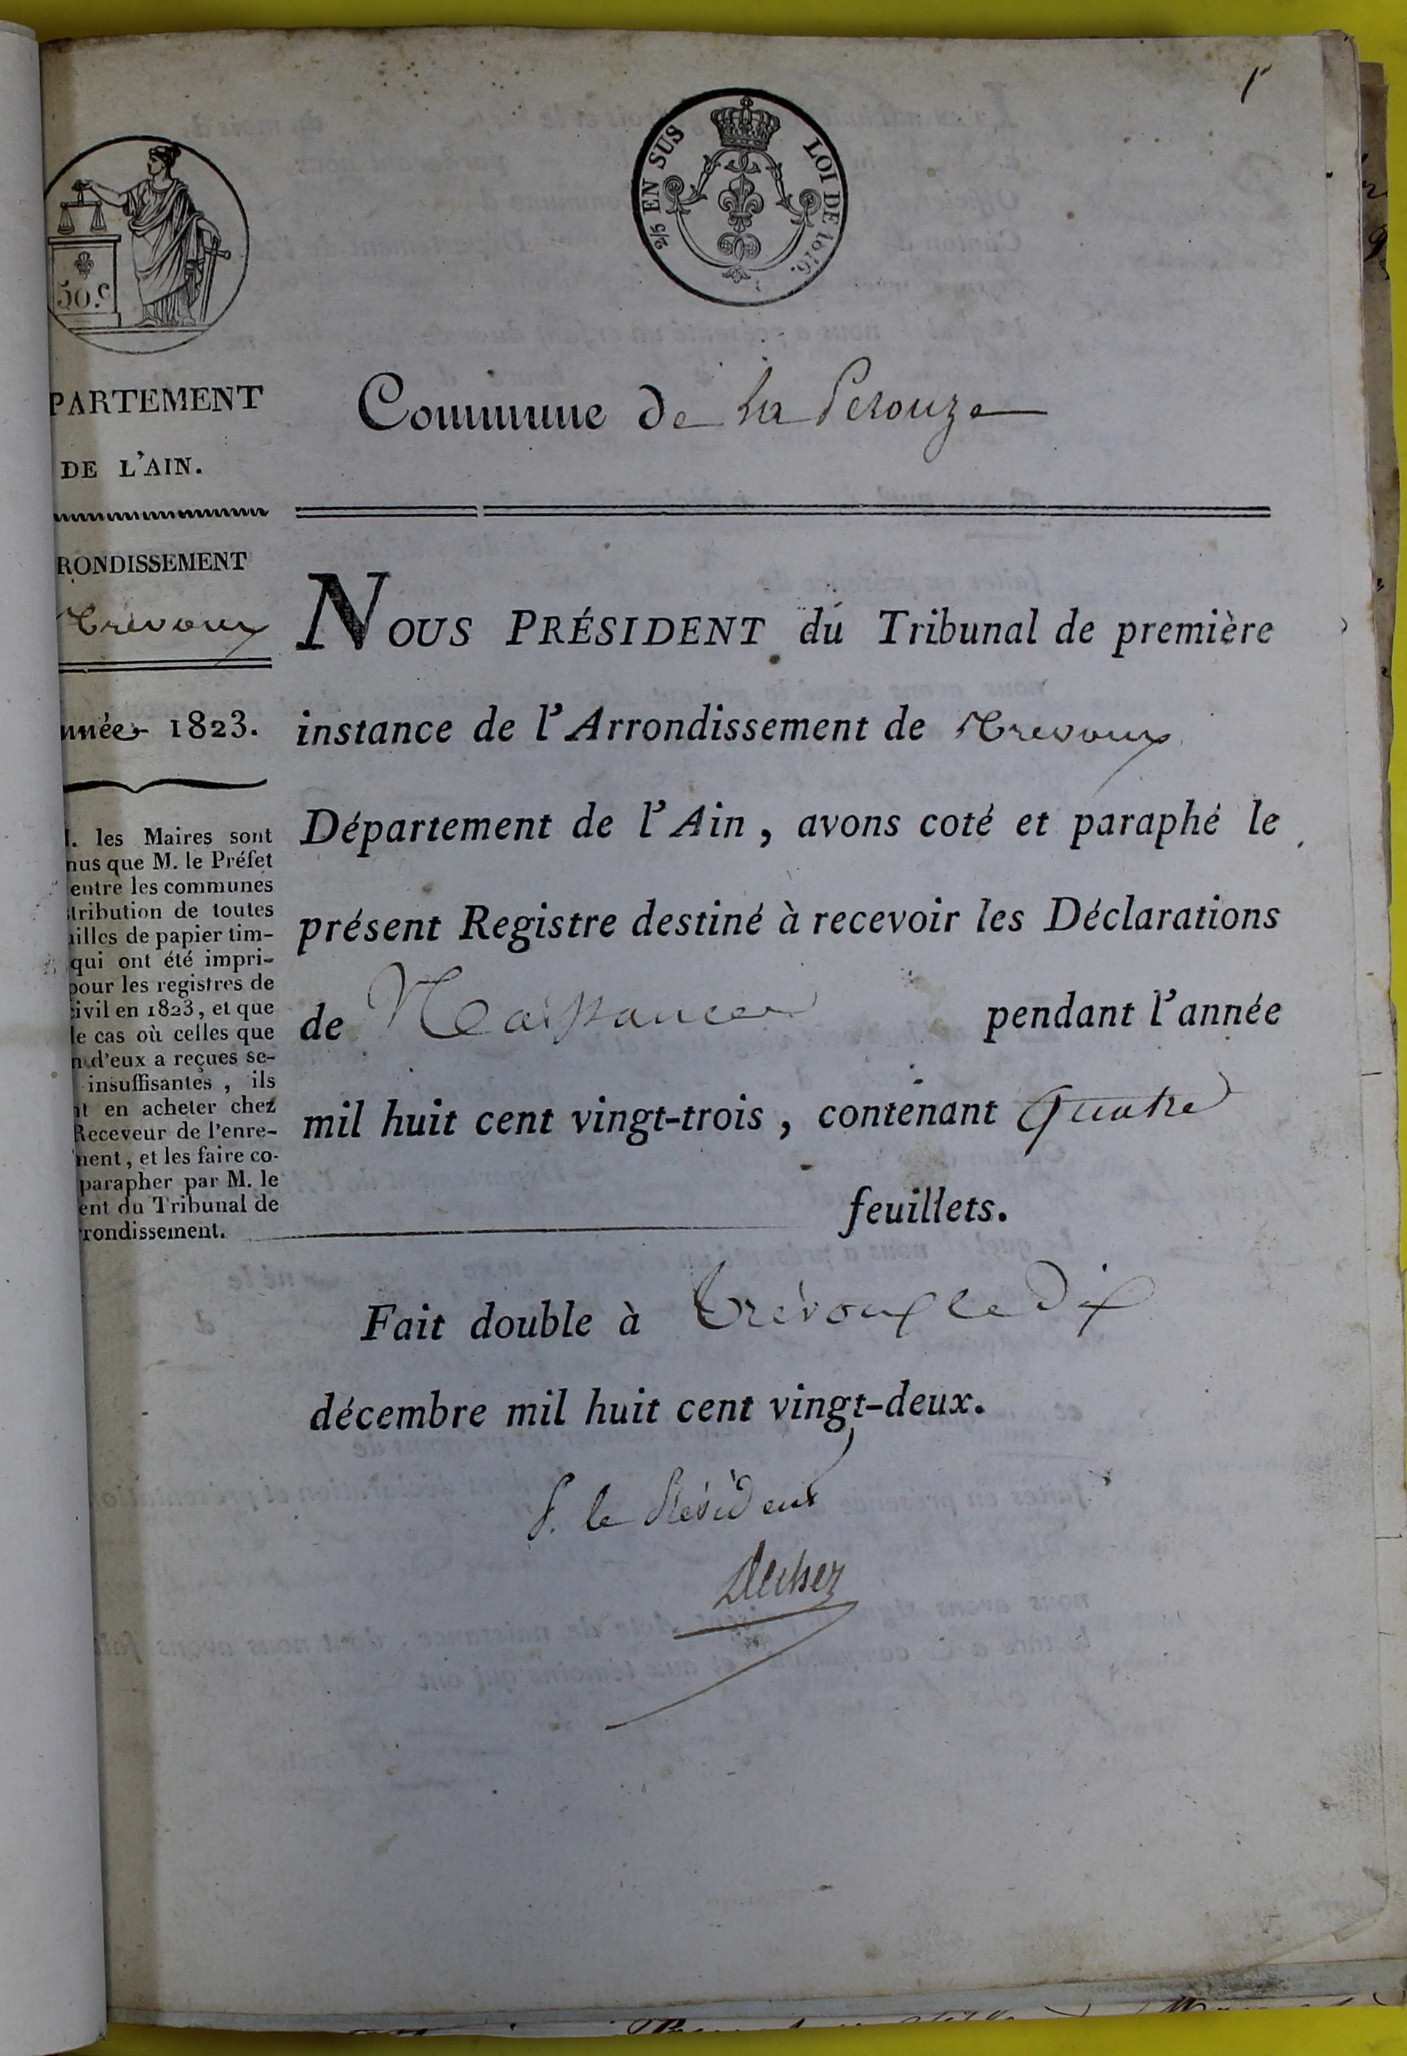 1
2/5 EN SUS LOI DE 1816.
50.C
PARTEMENT
DE L'AIN.
RONDISSEMENT
Trévoux
nnée 1823.
. les Maires sont
nus que M. le Préfet
entre les communes
tribution de toutes
illes de papier tim-
qui ont été impri-
pour les registres de
civil en 1823, et que
le cas où celles que
n d'eux a reçues se-
insuffisantes, ils
nt en acheter chez
Receveur de l'enre-
ment, et les faire co-
parapher par M. le
ent du Tribunal de
rrondissement.
Commune de La Perouze
NOUS PRÉSIDENT du Tribunal de première
instance de l'Arrondissement de Trevoux
Département de l'Ain, avons coté et paraphé le
présent Registre destiné à recevoir les Déclarations
de Naissances pendant l'année
mil huit cent vingt-trois, contenant quatre
feuillets.
Fait double à Trévoux le dix
décembre mil huit cent vingt-deux.
P. le Président